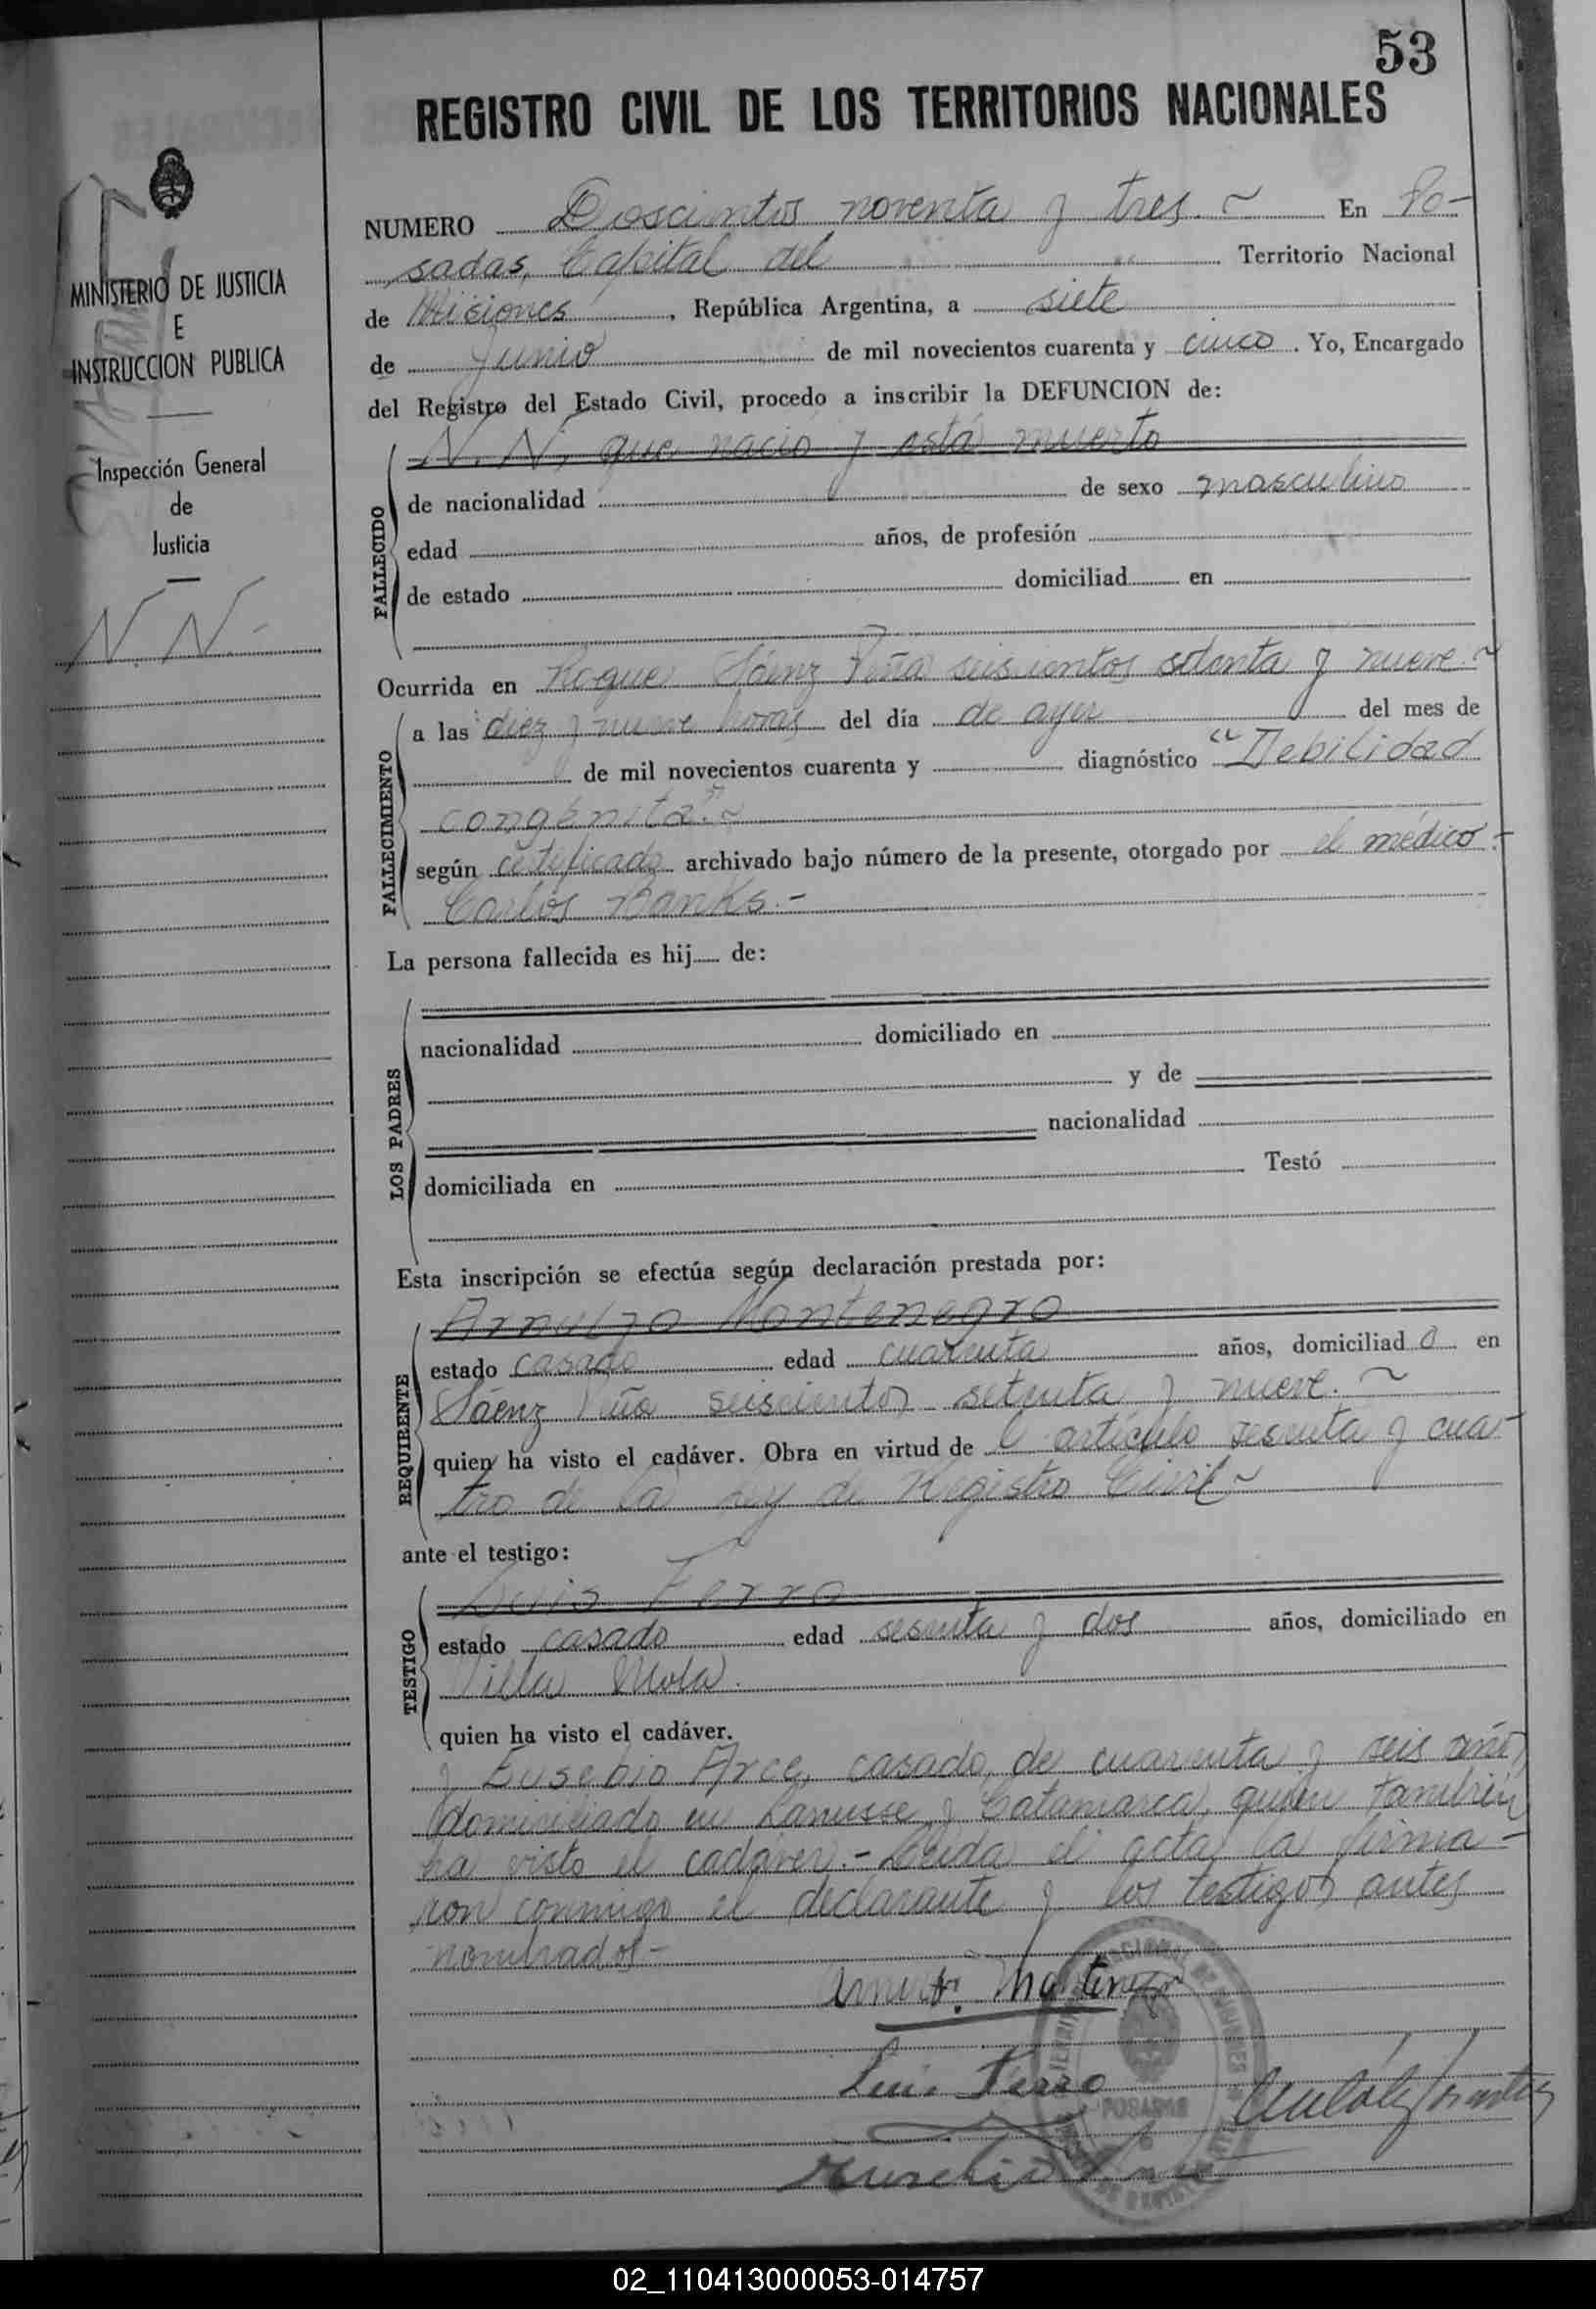 53
REGISTRO CIVIL DE LOS TERRITORIOS NACIONALES
MINISTERIO DE JUSTICIA
E
INSTRUCCION PUBLICA
Inspección General
de
Justicia
N. N.
NUMERO Doscientos noventa y tres. ~ En Po-
sadas, Capital del Territorio Nacional
de Misiones, República Argentina, a siete
de Junio de mil novecientos cuarenta y cinco. Yo, Encargado
del Registro del Estado Civil, procedo a inscribir la DEFUNCION de:
FALLECIDO
N. N, que nació y está muerto
de nacionalidad de sexo masculino
edad años, de profesión
de estado domiciliad en
Ocurrida en Roque Sáenz Peña seiscientos setenta y nueve ~
FALLECIMIENTO
a las diez y nueve horas del día de ayer del mes de
de mil novecientos cuarenta y diagnóstico "Debilidad
congénita". ~
según certificado archivado bajo número de la presente, otorgado por el médico -
Carlos Banks. -
La persona fallecida es hij de:
LOS PADRES
nacionalidad domiciliado en
y de
nacionalidad
domiciliada en Testó
Esta inscripción se efectúa según declaración prestada por:
REQUIRENTE
Arnulfo Montenegro
estado casado edad cuarenta años, domiciliado en
Sáenz Peña seiscientos setenta y nueve. ~
quien ha visto el cadáver. Obra en virtud del artículo sesenta y cua-
tro de la ley de Registro Civil ~
ante el testigo:
TESTIGO
Luis Ferro
estado casado edad sesenta y dos años, domiciliado en
Villa Mola.
quien ha visto el cadáver.
y Eusebio Arce, casado, de cuarenta y seis años,
domiciliado en Lanusse y Catamarca, quien también
ha visto el cadáver. - Leída el acta la firma-
ron conmigo el declarante y los testigos antes
nombrados -
Luis Ferro
POSADAS
02_110413000053-014757